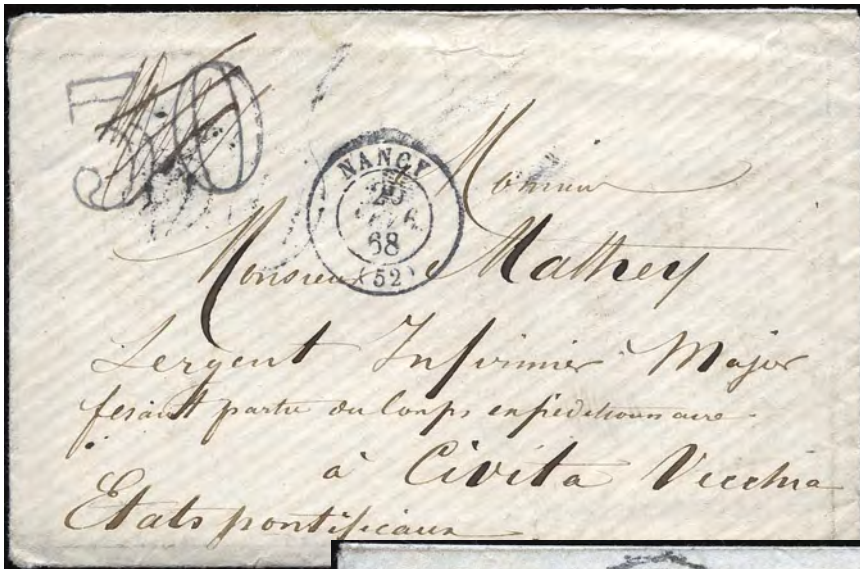 30
NANCY
68
(52)
Monsieur
Monsieur Mathey
Sergent Infirmier Major
fesant partie du Corps expeditionnaire
à Civita Vecchia
Etats pontificaux